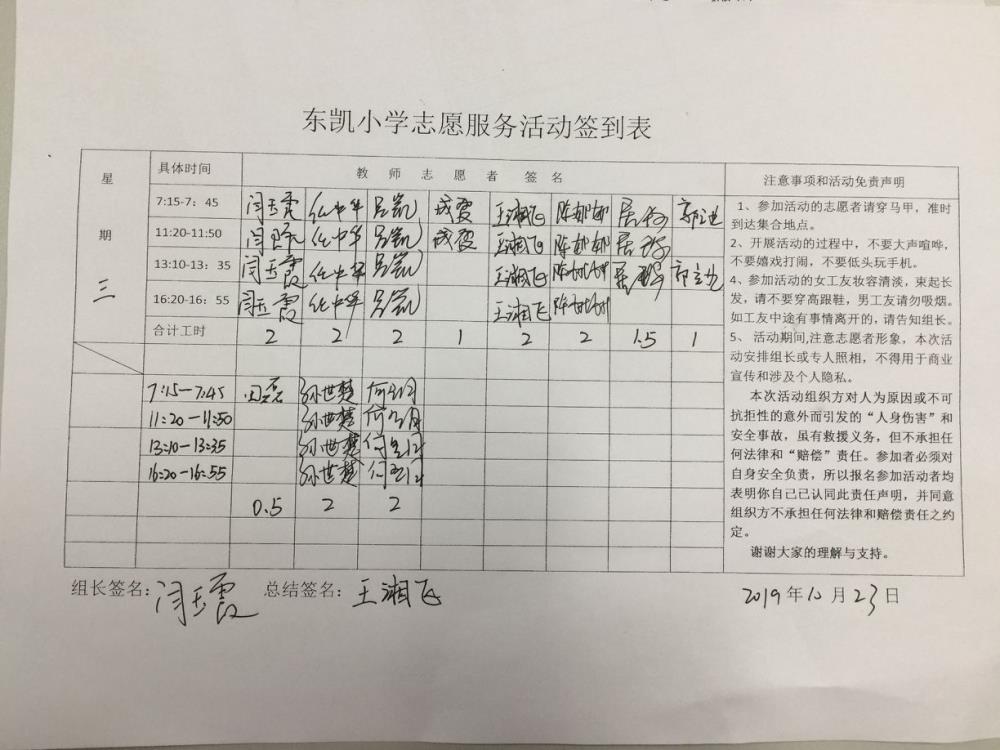 东凯小学志愿服务活动签到表
星期三
具体时间 教师志愿者签名 注意事项和活动免责声明
7:15-7：45 闫玉霞 化中华 吕凯 成霞 王湘飞 陈娜娜
11:20-11:50 闫玉霞 化中华 吕凯 成霞 王湘飞 陈娜娜
13:10-13：35 闫玉霞 化中华 吕凯 王湘飞 陈娜娜
16:20-16：55 闫玉霞 化中华 吕凯 王湘飞 陈娜娜
合计工时 2 2 2 1 2 2 1.5 1
7:15—7:45 田磊 孙世楚
11:20—11:50 孙世楚
13:10—13:35 孙世楚
16:20—16:55 孙世楚
0.5 2 2
1、参加活动的志愿者请穿马甲，准时
到达集合地点。
2、开展活动的过程中，不要大声喧哗，
不要嬉戏打闹，不要低头玩手机。
4、参加活动的女工友妆容清淡，束起长
发，请不要穿高跟鞋，男工友请勿吸烟。
如工友中途有事情离开的，请告知组长。
5、 活动期间,注意志愿者形象，本次活
动安排组长或专人照相，不得用于商业
宣传和涉及个人隐私。
本次活动组织方对人为原因或不可
抗拒性的意外而引发的“人身伤害”和
安全事故，虽有救援义务，但不承担任
何法律和“赔偿”责任。参加者必须对
自身安全负责，所以报名参加活动者均
表明你自己已认同此责任声明，并同意
组织方不承担任何法律和赔偿责任之约
定。
谢谢大家的理解与支持。
组长签名：闫玉霞 总结签名：王湘飞 2019年10月23日